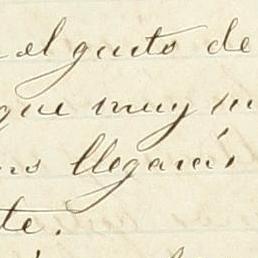 el gusto de
que muy
llegará
te.